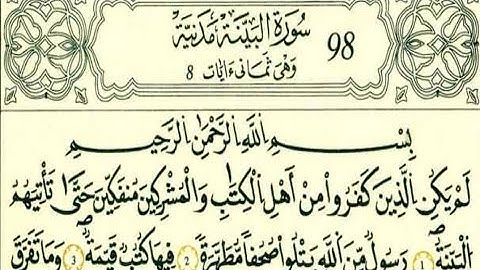 سُورَةُ الْبَيِّنَةِ مَدَنِيَّة 98
وَهْيَ ثَمَانِي ءَايَات 8
بِسْمِ اِللَّهِ اِلرَّحْمَٰنِ اِلرَّحِيمِ
لَمْ يَكُنِ اِلذِينَ كَفَرُواْ مِنَ اَهْلِ اِلْكِتَٰبِ وَالْمُشْرِكِينَ مُنفَكِّينَ حَتَّىٰ تَاتِيَهُمُ
اُلْبَيِّنَةُ 1 رَسُولٌ مِّنَ اَللَّهِ يَتْلُواْ صُحُفاً مُّطَهَّرَةً 2 فِيهَا كُتُبٌ قَيِّمَةٌ 3 وَمَا تَفَرَّقَ